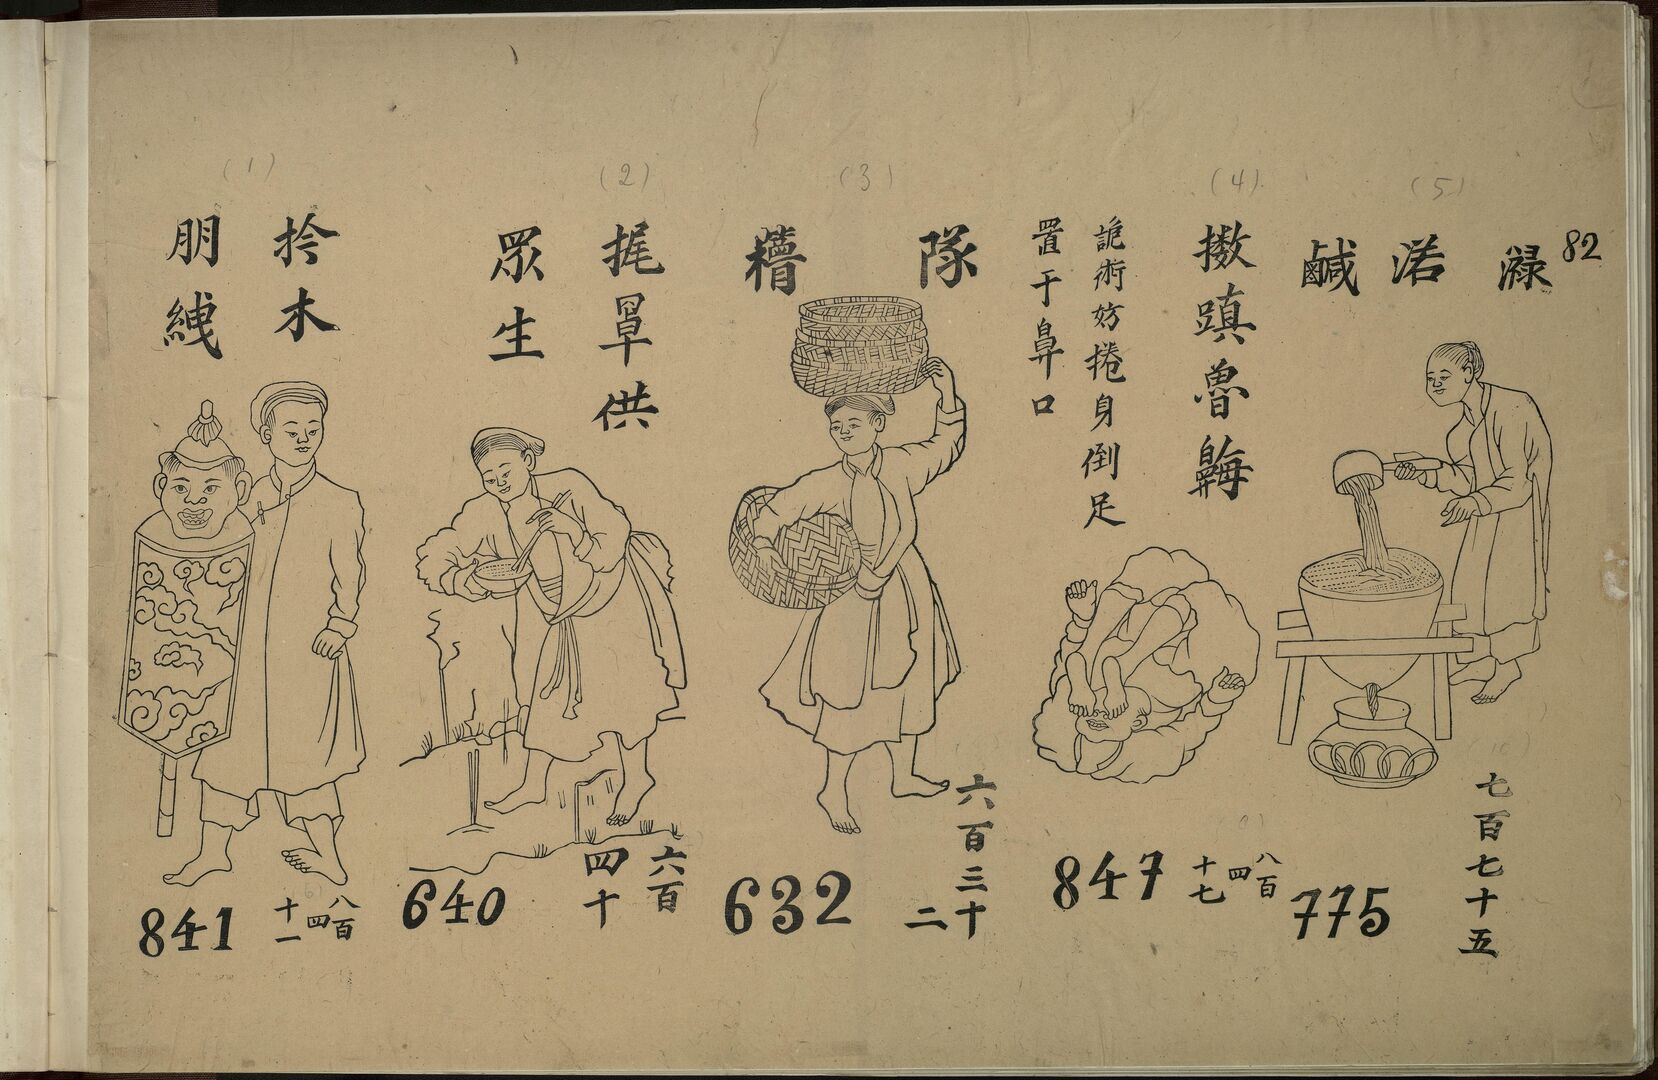 82
(5)
渃
鹹
七百七十五
775
(4)
蹎魯
詭術妨捲身倒足
置于鼻口
八百
四
十七
847
(3)
隊
六百三十
二
632
(2)
捤罩供
眾生
六百
四十
640
(1)
扲木
朋
八百
四
十一
841